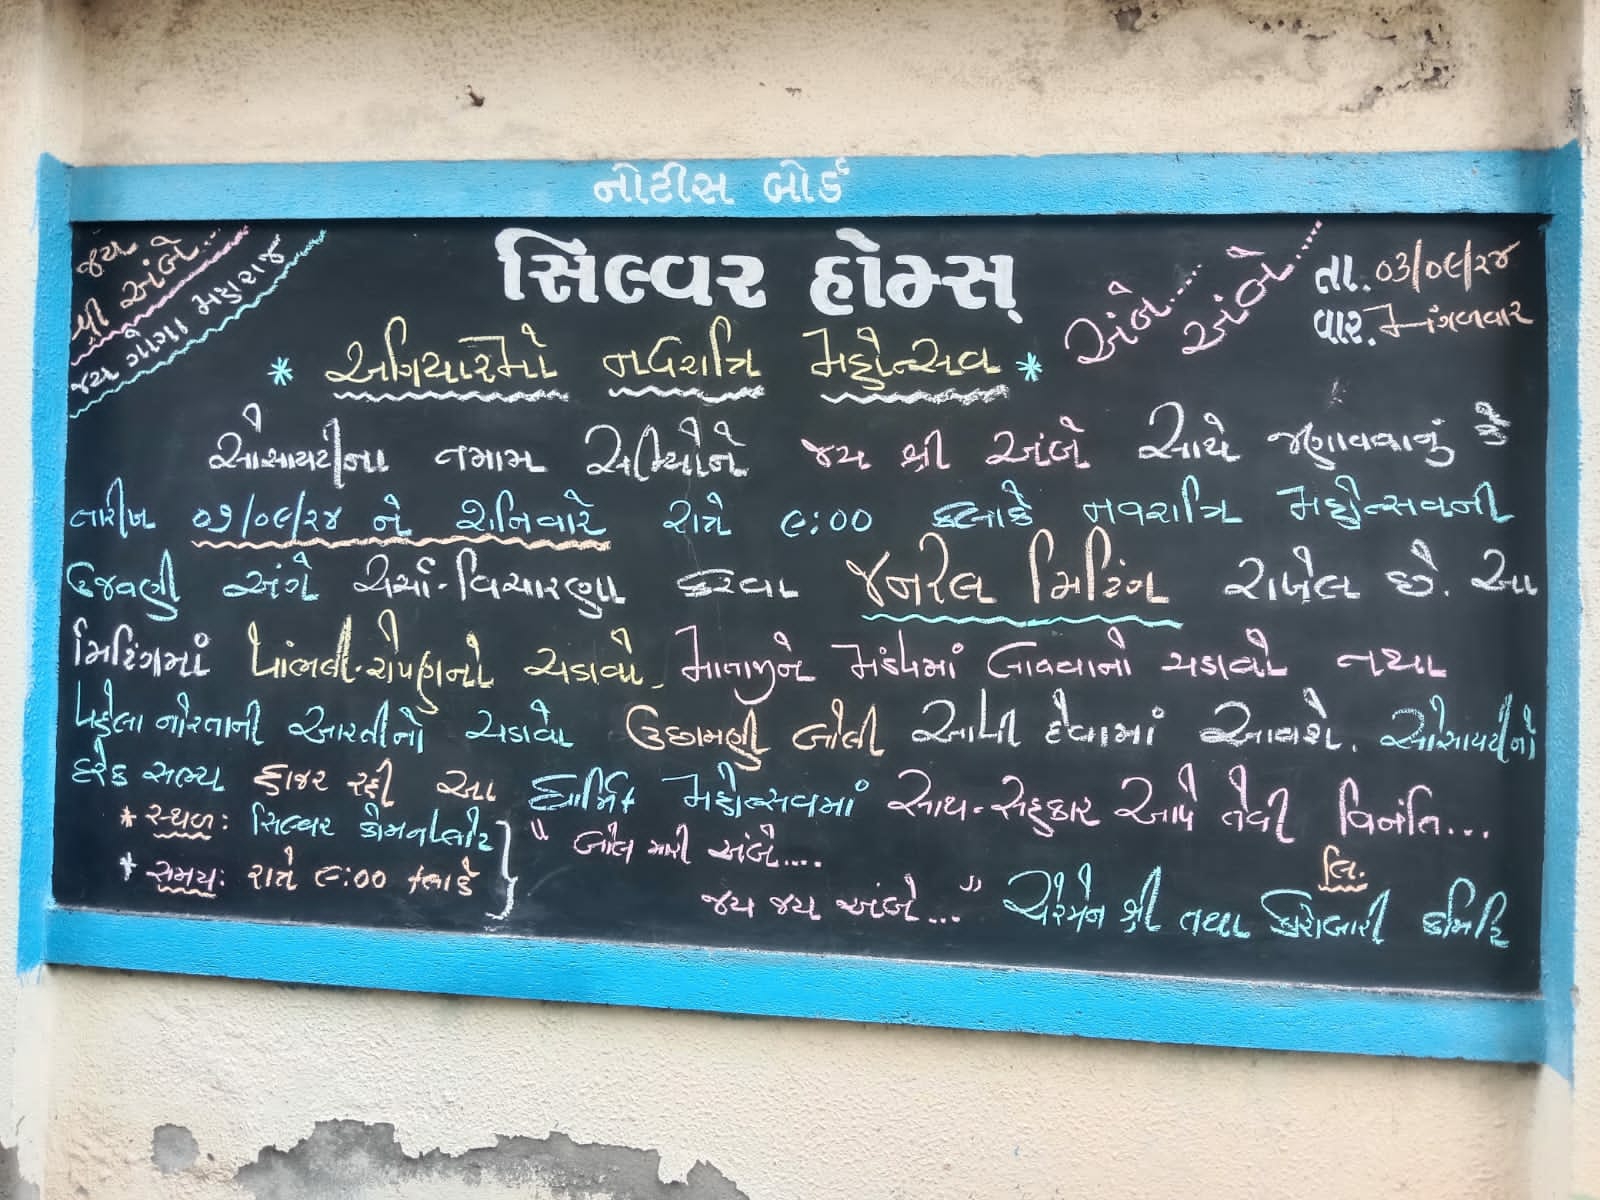 નોટીસ બોર્ડ
જય
શ્રી અંબે...
જય ગોગા મહારાજ
સિલ્વર હોમ્સ્
અંબે..... અંબે.....
તા. ૦૩/૦૯/૨૪
વાર. મંગળવાર
* અગિયારમો નવરાત્રિ મહોત્સવ *
સોસાયટીના તમામ સભ્યોને જય શ્રી અંબે સાથે જણાવવાનું કે
તારીખ ૦૭/૦૯/૨૪ ને શનિવારે રાત્રે ૯:૦૦ કલાકે નવરાત્રિ મહોત્સવની
ઉજવણી અંગે ચર્ચા-વિચારણા કરવા જનરલ મિટિંગ રાખેલ છે. આ
મિટિંગમાં થાંભલી-રોપણનો ચડાવો, માતાજીને મંડપમાં લાવવાનો ચડાવો તથા
પહેલા નોરતાની આરતીનો ચડાવો ઉછામણી બોલી આપી દેવામાં આવશે. સોસાયટીનો
દરેક સભ્ય હાજર રહી આ ધાર્મિક મહોત્સવમાં સાથ-સહકાર આપે તેવી વિનંતિ...
* સ્થળ: સિલ્વર કોમનપ્લોટ
* સમય: રાત્રે ૯:૦૦ કલાકે
" બોલ મારી અંબે....
જય જય અંબે..."
લિ.
ચેરમેન શ્રી તથા કારોબારી કમિટિ